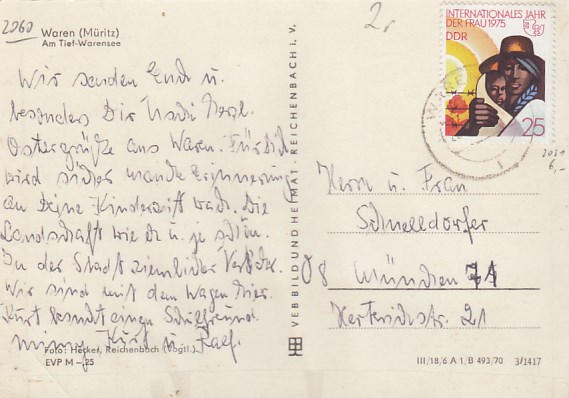 2060
Waren (Müritz)
Am Tief-Warensee
Wir senden Euch u.
besonders Dir Uschi herzl.
Ostergrüße aus Waren. Für Dich
wird sicher manche Erinnerung
an Deine Kinderzeit wach. Die
Landschaft wie eh u. je schön.
In der Stadt ziemlicher Verkehr.
Wir sind mit dem Wagen hier.
Kurt besucht einen Schulfreund.
Kurt u. Ralf.
Foto: Hecker, Reichenbach (Vogtl.)
EVP M -,25
VEB BILD UND HEIMAT · REICHENBACH i. V.
INTERNATIONALES JAHR
DER FRAU 1975
DDR
25
6,-
Herrn u. Frau
Schnelldorfer
08 München 71
str. 21
III/18/6 A 1/B 493/70 3/1417